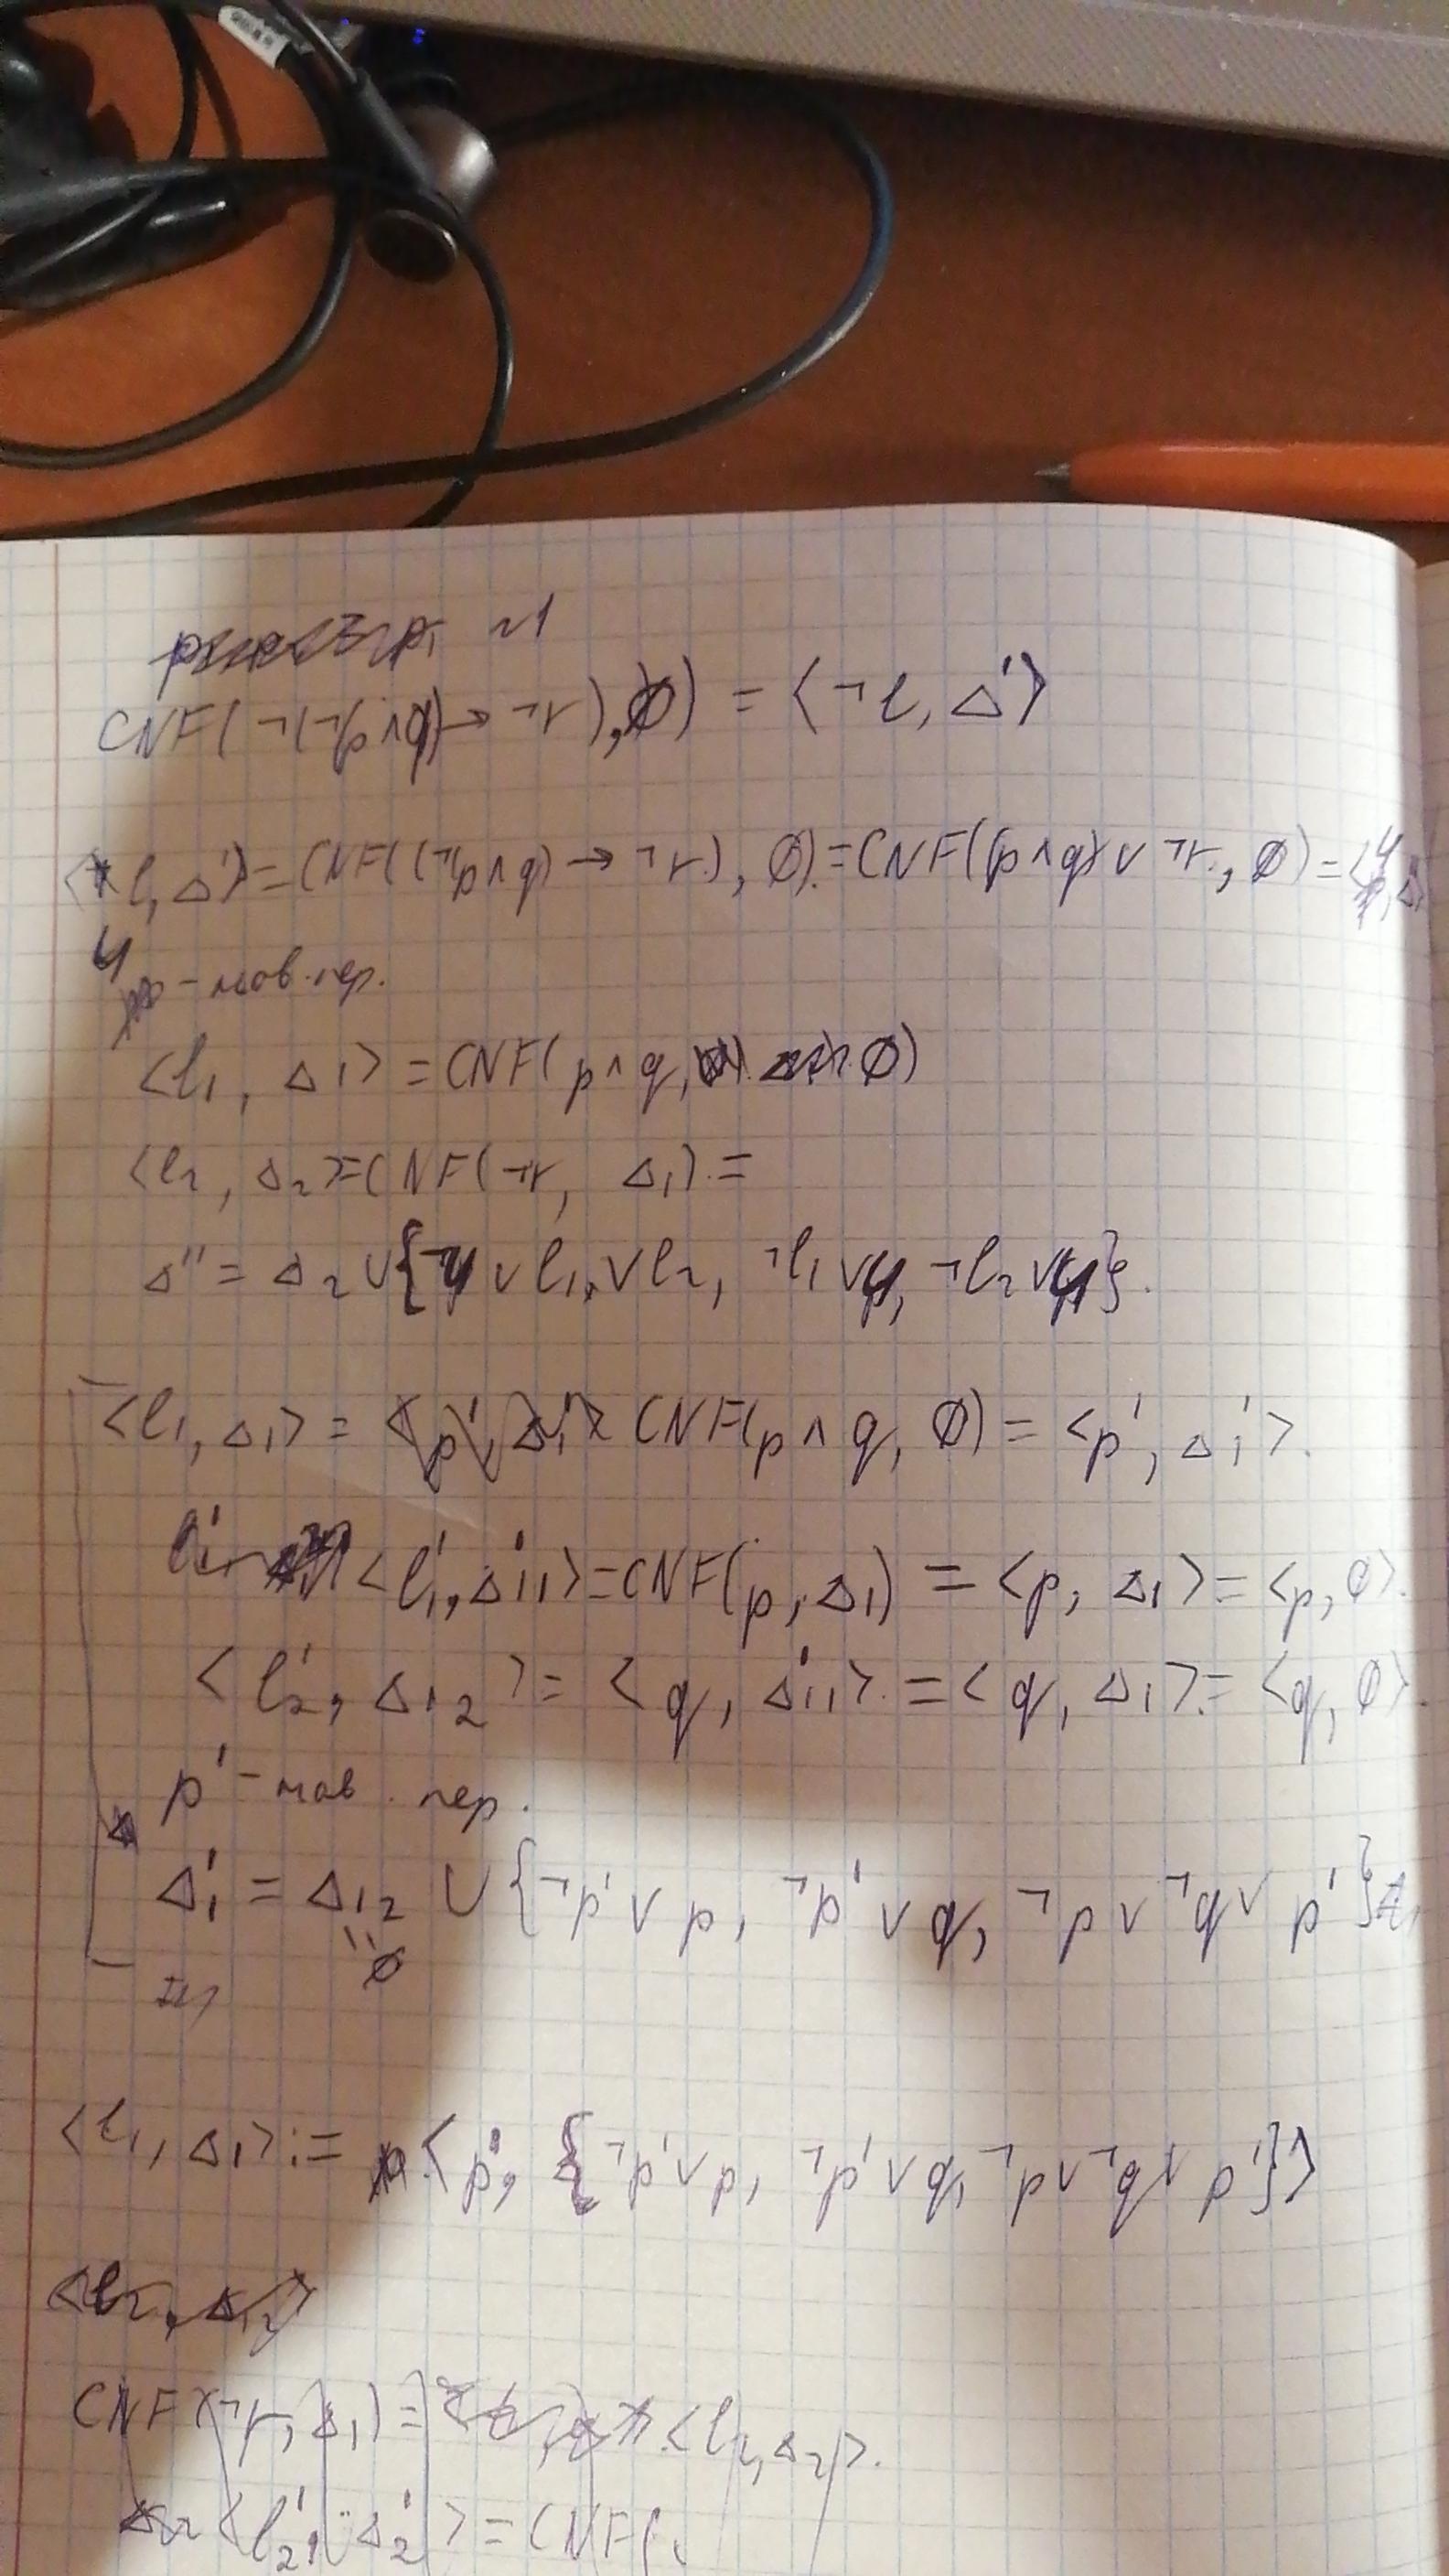 №1
CNF(¬(¬(p∧q)→ ¬r),∅) = ⟨¬l, Δ'⟩
⟨l, Δ'⟩=CNF((¬(p∧q)→¬r), ∅)=CNF((p∧q)∨¬r, ∅)=⟨y, Δ
y - нов. пер.
⟨l₁, Δ₁⟩ = CNF(p∧q, ∅)
⟨l₂, Δ₂⟩=CNF(¬r, Δ₁)=
Δ'' = Δ₂ ∪{¬y ∨ l₁ ∨ l₂, ¬l₁∨y, ¬l₂∨y}.
⟨l₁, Δ₁⟩ = CNF(p∧q, ∅) = ⟨p', Δ₁'⟩.
⟨l₁', Δ₁₁'⟩=CNF(p, Δ₁) = ⟨p, Δ₁⟩= ⟨p, ∅⟩.
⟨l₂', Δ₁₂⟩= ⟨q, Δ₁₁'⟩ =⟨q, Δ₁⟩= ⟨q, ∅⟩.
p' - нов. пер.
Δ₁' = Δ₁₂ ∪ {¬p'∨p, ¬p'∨q, ¬p∨¬q∨p'}
∅
⟨l₁, Δ₁⟩:= ⟨p', {¬p'∨p, ¬p'∨q, ¬p∨¬q∨p'}⟩
CNF(¬r, Δ₁)= ⟨l₂, Δ₂⟩.
⟨l₂', Δ₂'⟩=CNF(